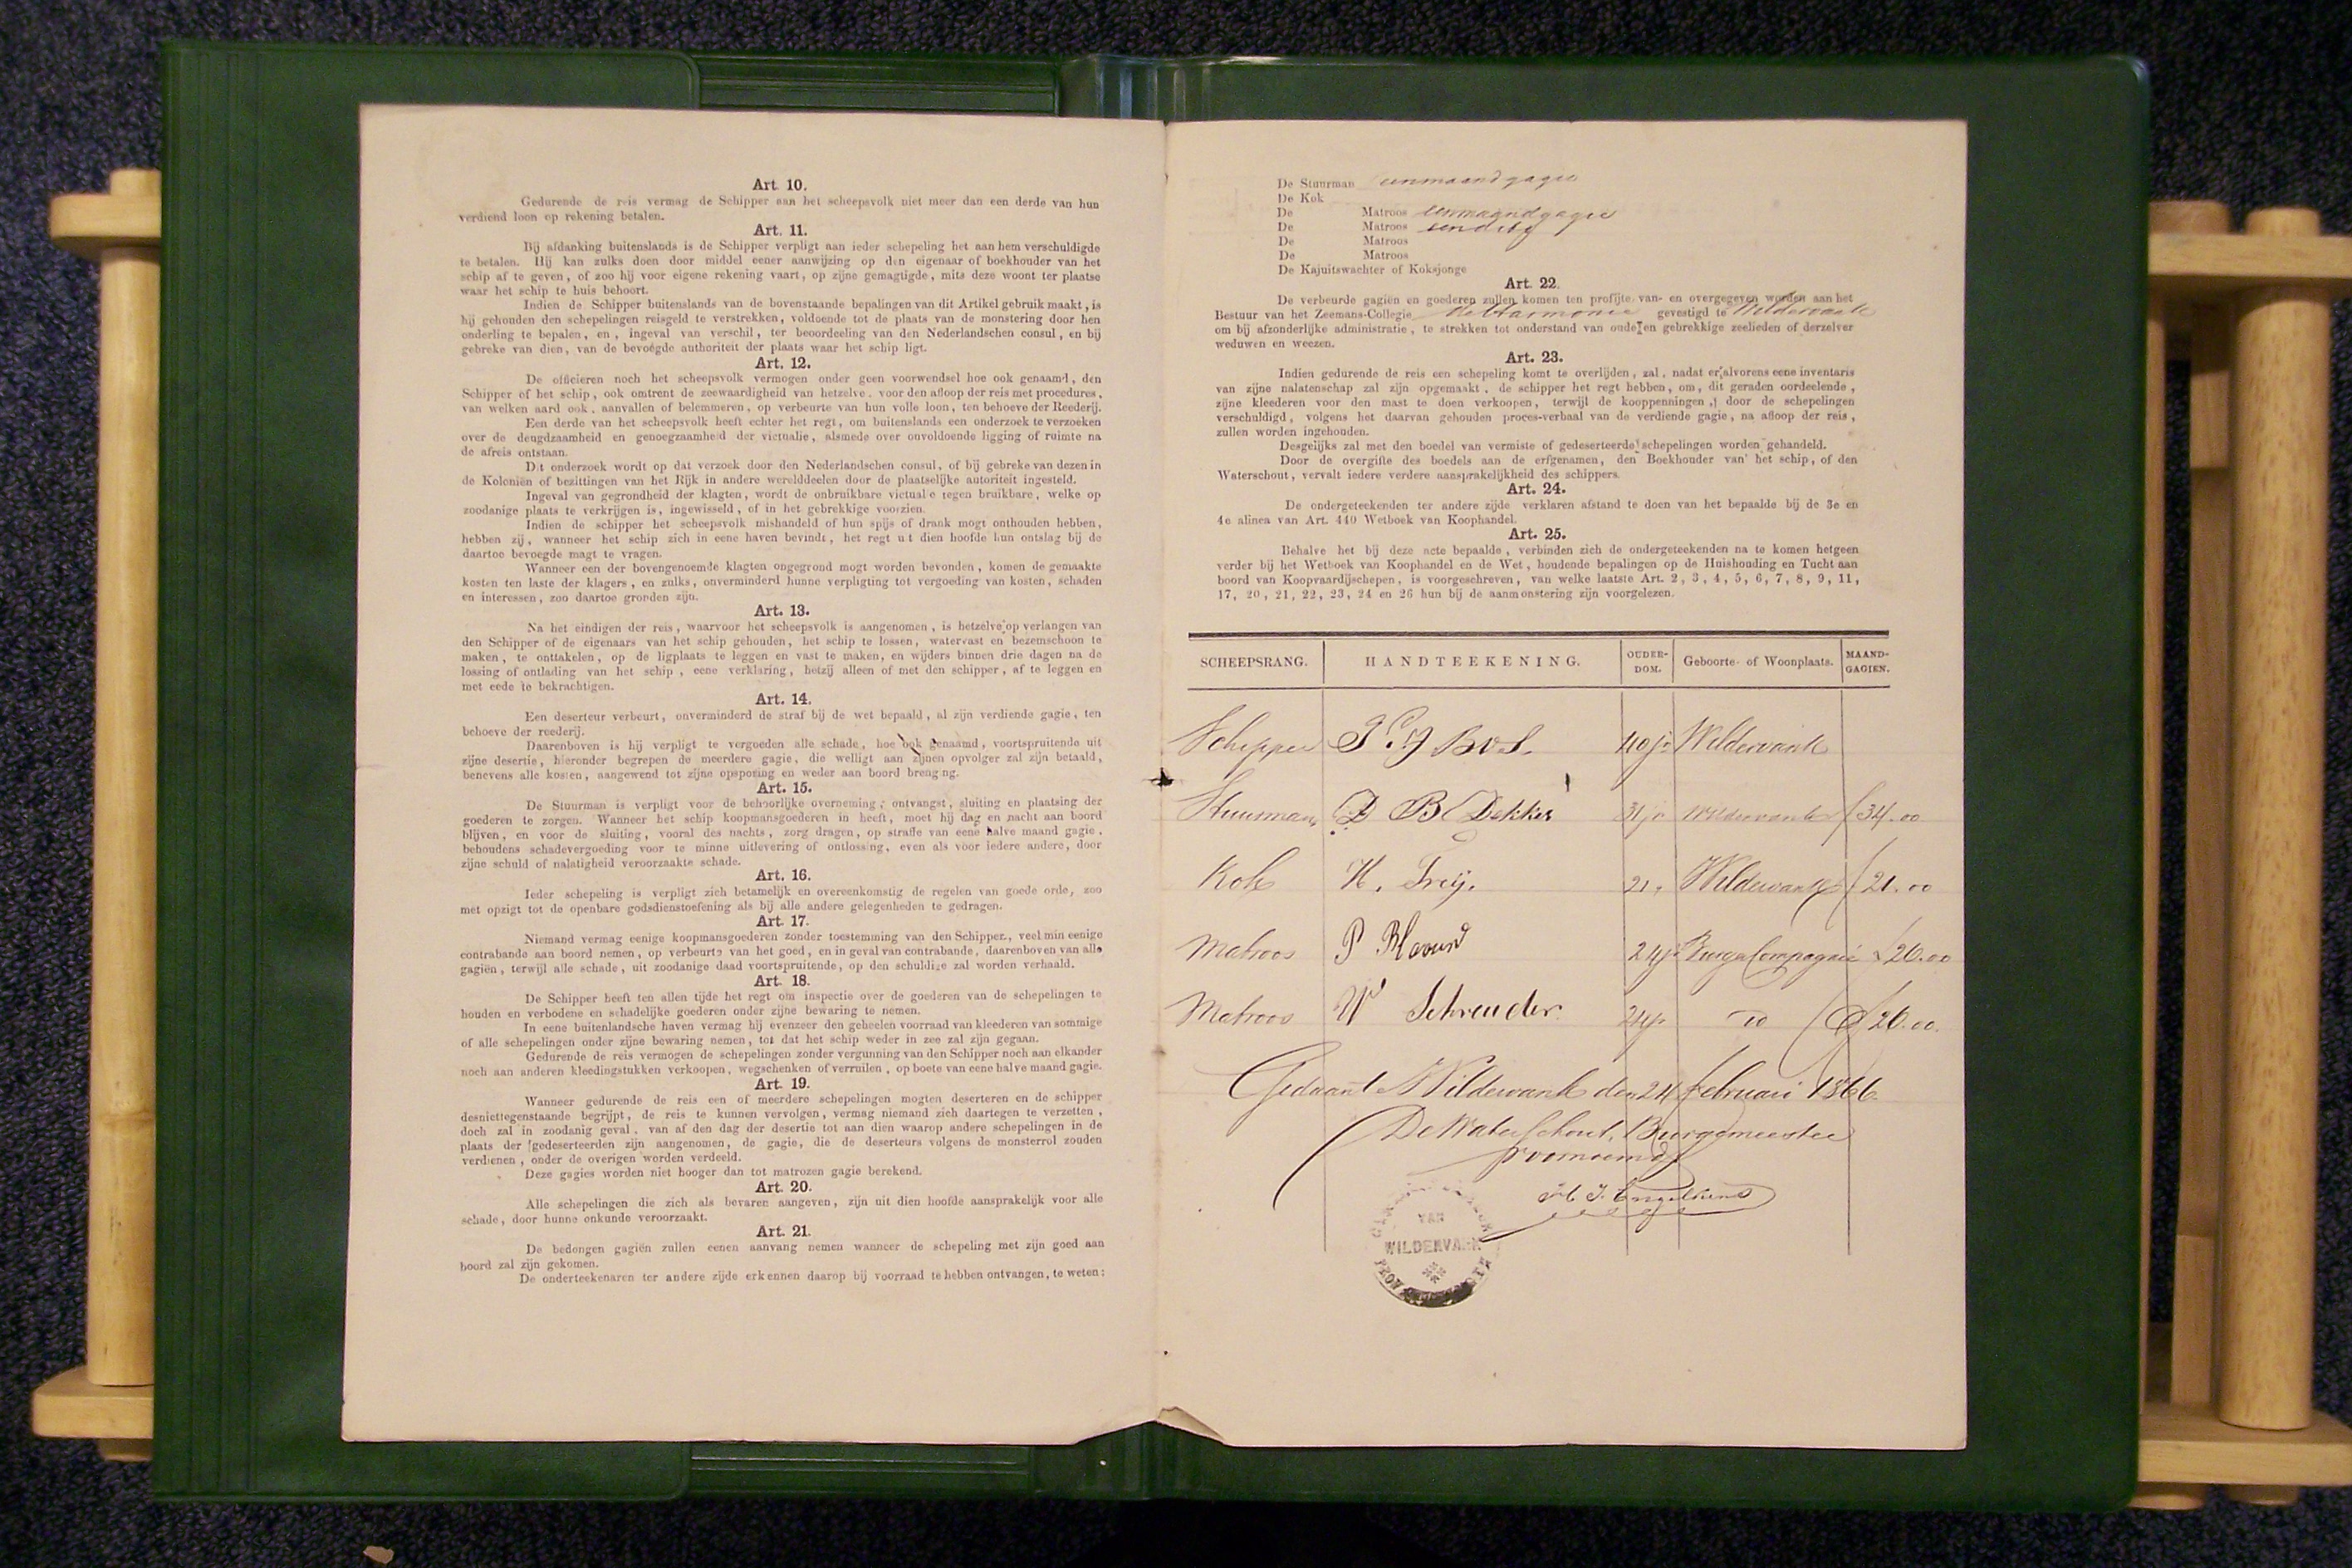 Art. 10.
Gedurende de reis vermag de Schipper aan het scheepsvolk niet meer dan een derde van hun
verdiend loon op rekening betalen.
Art. 11.
Bij afdanking buitenslands is de Schipper verpligt aan ieder schepeling het aan hem verschuldigde
te betalen. Hij kan zulks doen door middel eener aanwijzing op den eigenaar of boekhouder van het
schip af te geven, of zoo hij voor eigene rekening vaart, op zijne gemagtigde, mits deze woont ter plaatse
waar het schip te huis behoort.
Indien de Schipper buitenslands van de bovenstaande bepalingen van dit Artikel gebruik maakt, is
hij gehouden den schepelingen reisgeld te verstrekken, voldoende tot de plaats van de monstering door hen
onderling te bepalen, en, ingeval van verschil, ter beoordeeling van den Nederlandschen consul, en bij
gebreke van dien, van de bevoegde authoriteit der plaats waar het schip ligt.
Art. 12.
De officieren noch het scheepsvolk vermogen onder geen voorwendsel hoe ook genaamd, den
Schipper of het schip, ook omtrent de zeewaardigheid van hetzelve, voor den afloop der reis met procedures,
van welken aard ook, aanvallen of belemmeren, op verbeurte van hun volle loon, ten behoeve der Reederij.
Een derde van het scheepsvolk heeft echter het regt, om buitenslands een onderzoek te verzoeken
over de deugdzaamheid en genoegzaamheid der victualie, alsmede over onvoldoende ligging of ruimte na
de afreis ontstaan.
Dit onderzoek wordt op dat verzoek door den Nederlandschen consul, of bij gebreke van dezen in
de Koloniën of bezittingen van het Rijk in andere werelddeelen door de plaatselijke autoriteit ingesteld.
Ingeval van gegrondheid der klagten, wordt de onbruikbare victualie tegen bruikbare, welke op
zoodanige plaats te verkrijgen is, ingewisseld, of in het gebrekkige voorzien.
Indien de schipper het scheepsvolk mishandeld of hun spijs of drank mogt onthouden hebben,
hebben zij, wanneer het schip zich in eene haven bevindt, het regt uit dien hoofde hun ontslag bij de
daartoe bevoegde magt te vragen.
Wanneer een der bovengenoemde klagten ongegrond mogt worden bevonden, komen de gemaakte
kosten ten laste der klagers, en zulks, onverminderd hunne verpligting tot vergoeding van kosten, schaden
en interessen, zoo daartoe gronden zijn.
Art. 13.
Na het eindigen der reis, waarvoor het scheepsvolk is aangenomen, is hetzelve op verlangen van
den Schipper of de eigenaars van het schip gehouden, het schip te lossen, watervast en bezemschoon te
maken, te onttakelen, op de ligplaats te leggen en vast te maken, en wijders binnen drie dagen na de
lossing of ontlading van het schip, eene verklaring, hetzij alleen of met den schipper, af te leggen en
met eede te bekrachtigen.
Art. 14.
Een deserteur verbeurt, onverminderd de straf bij de wet bepaald, al zijn verdiende gagie, ten
behoeve der reederij.
Daarenboven is hij verpligt te vergoeden alle schade, hoe ook genaamd, voortspruitende uit
zijne desertie, hieronder begrepen de meerdere gagie, die welligt aan zijnen opvolger zal zijn betaald,
benevens alle kosten, aangewend tot zijne opsporing en weder aan boord brenging.
Art. 15.
De Stuurman is verpligt voor de behoorlijke overneming, ontvangst, sluiting en plaatsing der
goederen te zorgen. Wanneer het schip koopmansgoederen in heeft, moet hij dag en nacht aan boord
blijven, en voor de sluiting, vooral des nachts, zorg dragen, op straffe van eene halve maand gagie,
behoudens schadevergoeding voor te minne uitlevering of ontlossing, even als voor iedere andere, door
zijne schuld of nalatigheid veroorzaakte schade.
Art. 16.
Ieder schepeling is verpligt zich betamelijk en overeenkomstig de regelen van goede orde, zoo
met opzigt tot de openbare godsdienstoefening als bij alle andere gelegenheden te gedragen.
Art. 17.
Niemand vermag eenige koopmansgoederen zonder toestemming van den Schipper, veel min eenige
contrabande aan boord nemen, op verbeurte van het goed, en in geval van contrabande, daarenboven van alle
gagiën, terwijl alle schade, uit zoodanige daad voortspruitende, op den schuldige zal worden verhaald.
Art. 18.
De Schipper heeft ten allen tijde het regt om inspectie over de goederen van de schepelingen te
houden en verbodene en schadelijke goederen onder zijne bewaring te nemen.
In eene buitenlandsche haven vermag hij evenzeer den geheelen voorraad van kleederen van sommige
of alle schepelingen onder zijne bewaring nemen, tot dat het schip weder in zee zal zijn gegaan.
Gedurende de reis vermogen de schepelingen zonder vergunning van den Schipper noch aan elkander
noch aan anderen kleedingstukken verkoopen, wegschenken of verruilen, op boete van eene halve maand gagie.
Art. 19.
Wanneer gedurende de reis een of meerdere schepelingen mogten deserteren en de schipper
desniettegenstaande begrijpt, de reis te kunnen vervolgen, vermag niemand zich daartegen te verzetten,
doch zal in zoodanig geval, van af den dag der desertie tot aan dien waarop andere schepelingen in de
plaats der gedeserteerden zijn aangenomen, de gagie, die de deserteurs volgens de monsterrol zouden
verdienen, onder de overigen worden verdeeld.
Deze gagies worden niet hooger dan tot matrozen gagie berekend.
Art. 20.
Alle schepelingen die zich als bevaren aangeven, zijn uit dien hoofde aansprakelijk voor alle
schade, door hunne onkunde veroorzaakt.
Art. 21.
De bedongen gagiën zullen eenen aanvang nemen wanneer de schepeling met zijn goed aan
boord zal zijn gekomen.
De onderteekenaren ter andere zijde erkennen daarop bij voorraad te hebben ontvangen, te weten:
De Stuurman eenmaand gagie
De Kok
De Matroos eenmaandgagie
De Matroos een dito
De Matroos
De Matroos
De Kajuitswachter of Koksjonge
Art. 22.
De verbeurde gagiën en goederen zullen komen ten profijte van- en overgegeven worden aan het
Bestuur van het Zeemans-Collegie de Harmonie gevestigd te Wildervank
om bij afzonderlijke administratie, te strekken tot onderstand van oude en gebrekkige zeelieden of derzelver
weduwen en weezen.
Art. 23.
Indien gedurende de reis een schepeling komt te overlijden, zal, nadat er alvorens eene inventaris
van zijne nalatenschap zal zijn opgemaakt, de schipper het regt hebben, om, dit geraden oordeelende,
zijne kleederen voor den mast te doen verkoopen, terwijl de kooppenningen, door de schepelingen
verschuldigd, volgens het daarvan gehouden proces-verbaal van de verdiende gagie, na afloop der reis,
zullen worden ingehouden.
Desgelijks zal met den boedel van vermiste of gedeserteerde schepelingen worden gehandeld.
Door de overgifte des boedels aan de erfgenamen, den Boekhouder van het schip, of den
Waterschout, vervalt iedere verdere aansprakelijkheid des schippers.
Art. 24.
De ondergeteekenden ter andere zijde verklaren afstand te doen van het bepaalde bij de 3e en
4e alinea van Art. 440 Wetboek van Koophandel.
Art. 25.
Behalve het bij deze acte bepaalde, verbinden zich de ondergeteekenden na te komen hetgeen
verder bij het Wetboek van Koophandel en de Wet, houdende bepalingen op de Huishouding en Tucht aan
boord van Koopvaardijschepen, is voorgeschreven, van welke laatste Art. 2, 3, 4, 5, 6, 7, 8, 9, 11,
17, 20, 21, 22, 23, 24 en 26 hun bij de aanmonstering zijn voorgelezen.
SCHEEPSRANG. HANDTEEKENING. OUDER-DOM. Geboorte- of Woonplaats. MAAND-GAGIEN.
Schipper Bos. 40 jr Wildervank
Stuurman D B Dekker 31 jr Wildervank f 34.00
Kok H. Freij. 21, Wildervank f 21.00
Matroos P 24 jr Compagnie f 20.00
Matroos W Schreuder. 24 jr do f 20.00.
Gedaan te Wildervank den 24 februari 1866.
De Waterschout, Burgemeester
voornoemd
Engelkens
VAN
WILDERVANK